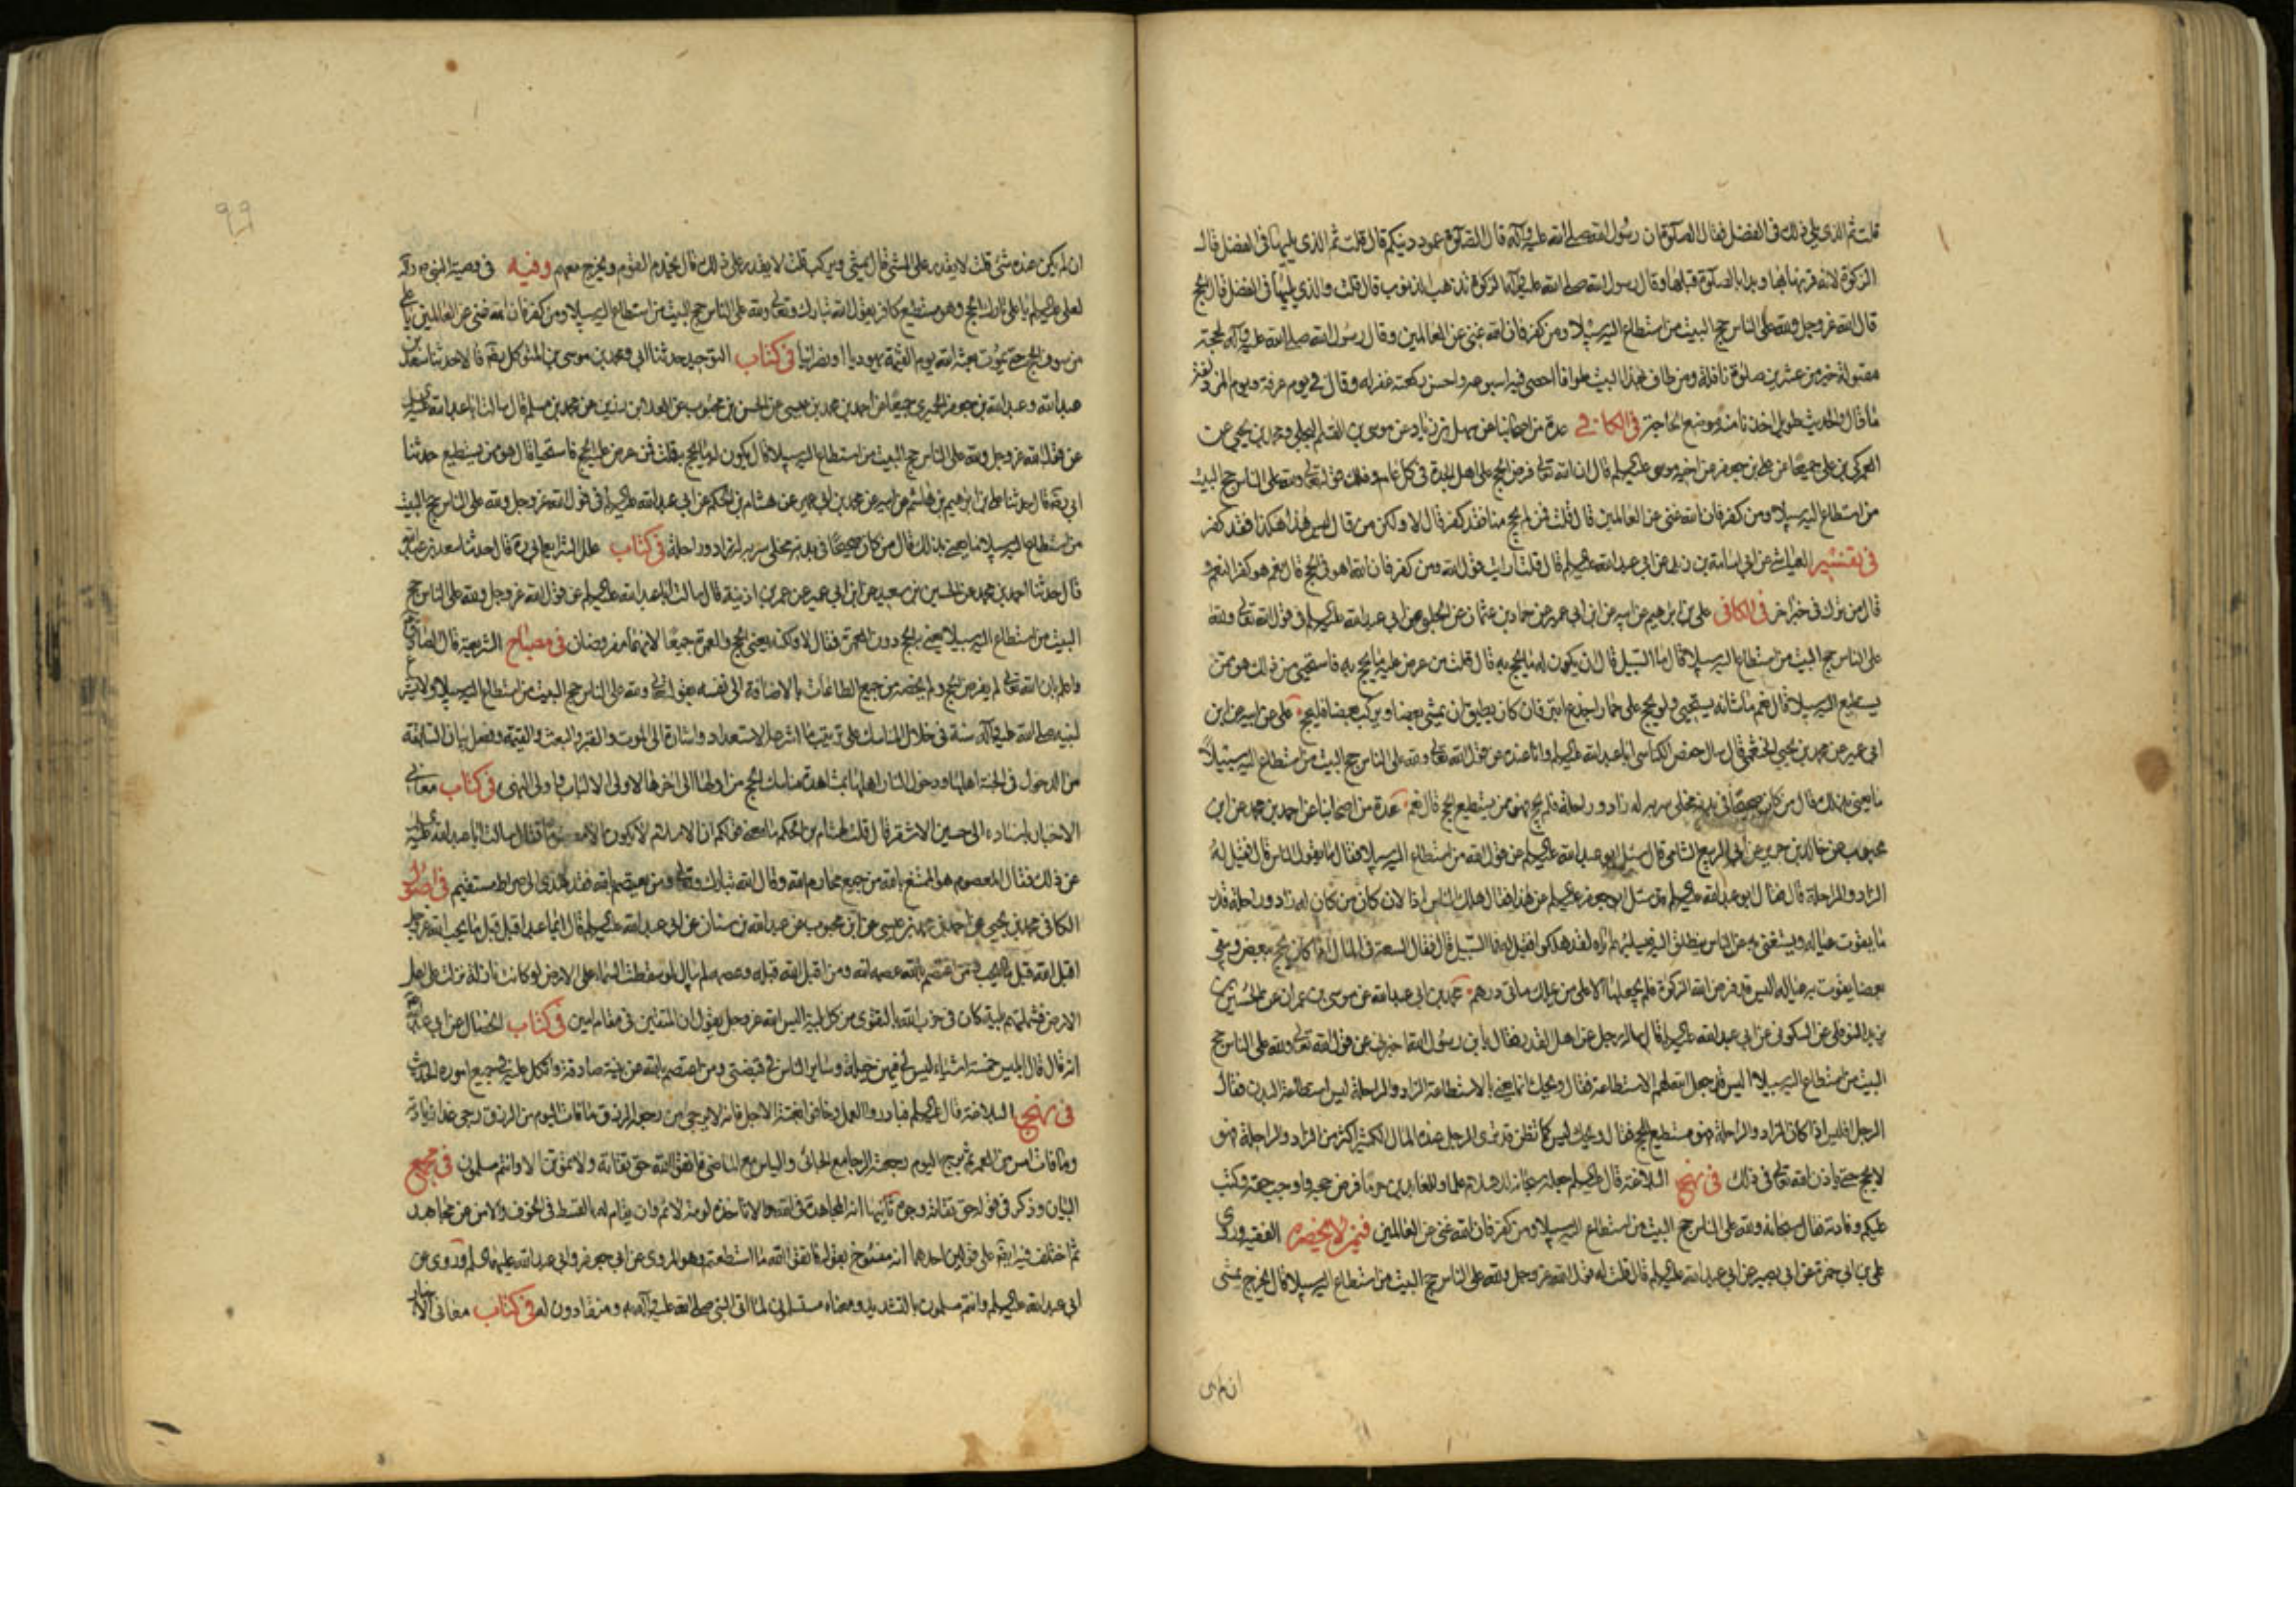 قلت ثم الذي يلي ذلك في الفضل فقال الصلوة ان رسول الله صلى الله عليه وآله قال الصلوة عمود دينكم قال قلت ثم الذي يليها في الفضل قال
الزكوة لانه قرنها بها وبدا بالصلوة قبلها وقال رسول الله صلى الله عليه وآله الزكوة تذهب الذنوب قال قلت والذي يليها في الفضل قال الحج
قال الله عز وجل ولله على الناس حج البيت من استطاع اليه سبيلا ومن كفر فان الله غني عن العالمين وقال رسول الله صلى الله عليه وآله لحجة
مقبولة خير من عشرين صلوة نافلة ومن طاف بهذا البيت طوافا احصى فيه اسبوعه واحسن ركعتيه غفر له وقال في يوم عرفة ويوم المزدلفة
ما قال والحديث طويل اخذنا منه موضع الحاجة في الكافي عدة من اصحابنا عن سهل بن زياد عن موسى بن القسم البجلي ومحمد بن يحيى عن
العمركي بن علي جميعا عن علي بن جعفر عن اخيه موسى عليه السلم قال ان الله تعالى فرض الحج على اهل الجدة في كل عام وذلك قوله تعالى ولله على الناس حج البيت
من استطاع اليه سبيلا ومن كفر فان الله غني عن العالمين قال قلت فمن لم يحج منا فقد كفر قال لا ولكن من قال ليس هذا هكذا فقد كفر
في تفسير العياشي عن ابي اسامة بن زيد عن ابي عبد الله عليه السلم قال قلت ارايت قول الله ومن كفر فان الله اهو في الحج قال نعم هو كفر النعم و
قال من ترك في خبر اخر في الكافي علي بن ابرهيم عن ابيه عن ابن ابي عمير عن حماد بن عثمان عن الحلبي عن ابي عبد الله عليه السلم في قول الله تعالى ولله
على الناس حج البيت من استطاع اليه سبيلا قال ما السبيل قال ان يكون له ما يحج به قال قلت من عرض عليه ما يحج به فاستحيى من ذلك هو ممن
يستطيع اليه سبيلا قال نعم ما شانه يستحيى ولو يحج على حمار اجدع ابتر فان كان يطيق ان يمشي بعضا ويركب بعضا فليحج علي عن ابيه عن ابن
ابي عمير عن محمد بن يحيى الخثعمي قال سال حفص الكناسي ابا عبد الله عليه السلم وانا عنده عن قول الله تعالى ولله على الناس حج البيت من استطاع اليه سبيلا
ما يعني بذلك قال من كان صحيحا في بدنه مخلى سربه له زاد وراحلة فلم يحج فهو ممن يستطيع الحج قال نعم عدة من اصحابنا عن احمد بن محمد عن ابن
محبوب عن خالد بن جرير عن ابي الربيع الشامي قال سئل ابو عبد الله عليه السلم عن قول الله من استطاع اليه سبيلا فقال ما يقول الناس قال فقيل له
الزاد والراحلة قال فقال ابو عبد الله عليه السلم قد سئل ابو جعفر عليه السلم عن هذا فقال هلك الناس اذا لان كان من كان له زاد وراحلة قدر
ما يقوت عياله ويستغني به عن الناس ينطلق اليه فيسلبهم اياه لقد هلكوا فقيل له فما السبيل قال فقال السعة في المال اذا كان يحج ببعض ويبقي
بعضا يقوت به عياله اليس قد فرض الله الزكوة فلم يجعلها الا على من يملك ماتى درهم محمد بن ابي عبد الله عن موسى بن عمران عن الحسين بن
يزيد النوفلي عن السكوني عن ابي عبد الله عليه السلم قال ساله رجل من اهل القدر فقال يا بن رسول الله اخبرني عن قول الله تعالى ولله على الناس حج
البيت من استطاع اليه سبيلا اليس قد جعل الله لهم الاستطاعة فقال ويحك انما يعني بالاستطاعة الزاد والراحلة ليس استطاعة البدن فقال
الرجل افليس اذا كان الزاد والراحلة فهو مستطيع للحج فقال ويحك ليس كما تظن قد ترى الرجل عنده المال الكثير اكثر من الزاد والراحلة فهو
لا يحج حتى ياذن الله تعالى في ذلك في نهج البلاغة قال عليه السلم جعله سبحانه للاسلام علما وللعائذين حرما فرض حجه واوجب حقه وكتب
عليكم وفادته فقال سبحانه ولله على الناس حج البيت من استطاع اليه سبيلا ومن كفر فان الله غني عن العالمين فيمن لا يحضره الفقيه وروى
علي بن ابي حمزة عن ابي بصير عن ابي عبد الله عليه السلم قال قلت له قول الله عز وجل ولله على الناس حج البيت من استطاع اليه سبيلا قال يخرج يمشي
ان لم يكن
٩٩
ان لم يكن عنده شئ قلت لا يقدر على المشي قال يمشي ويركب قلت لا يقدر على ذلك قال يخدم القوم ويخرج معهم وفيه في وصية النبي ص وآله
لعلي عليه السلم يا علي تارك الحج وهو مستطيع كافر يقول الله تبارك وتعالى ولله على الناس حج البيت من استطاع اليه سبيلا ومن كفر فان الله غني عن العالمين يا علي
من سوف الحج حتى يموت بعثه الله يوم القيمة يهوديا او نصرانيا في كتاب التوحيد حدثنا ابي ومحمد بن موسى بن المتوكل رهم قالا حدثنا سعد بن
عبد الله وعبد الله بن جعفر الحميري جميعا عن احمد بن محمد بن عيسى عن الحسن بن محبوب عن العلا بن رزين عن محمد بن مسلم قال سالت ابا عبد الله عليه السلم
عن قول الله عز وجل ولله على الناس حج البيت من استطاع اليه سبيلا قال يكون له ما يحج به قلت فمن عرض عليه الحج فاستحيا قال هو ممن يستطيع حدثنا
ابي ره قال حدثنا علي بن ابرهيم بن هاشم عن ابيه عن محمد بن ابي عمير عن هشام بن الحكم عن ابي عبد الله عليه السلم في قول الله عز وجل ولله على الناس حج البيت
من استطاع اليه سبيلا ما يعني بذلك قال من كان صحيحا في بدنه مخلى سربه له زاد وراحلة في كتاب علل الشرايع ابي ره قال حدثنا سعد بن عبد الله
قال حدثنا احمد بن محمد عن الحسين بن سعيد عن ابن ابي عمير عن عمر بن اذينة قال سالت ابا عبد الله عليه السلم عن قول الله عز وجل ولله على الناس حج
البيت من استطاع اليه سبيلا يعني به الحج دون العمرة فقال لا ولكنه يعني الحج والعمرة جميعا لانهما مفروضان في مصباح الشريعة قال الصادق
واعلم بان الله تعالى لم يفرض الحج ولم يخصه من جميع الطاعات بالاضافة الى نفسه بقوله تعالى ولله على الناس حج البيت من استطاع اليه سبيلا ولا شرع
لنبيه صلى الله عليه وآله سنة في خلال المناسك على ترتيب ما شرعه الا للاستعداد والاشارة الى الموت والقبر والبعث والقيمة وفصل بيان السابقة
من الدخول في الجنة اهلها ودخول النار اهلها بمشاهدة مناسك الحج من اولها الى اخرها لاولى الالباب واولى النهى في كتاب معاني
الاخبار باسناده الى حسين الاشقر قال قلت لهشام بن الحكم ما معنى قولكم ان الامام لا يكون الا معصوما فقال سالت ابا عبد الله عليه السلم
عن ذلك فقال المعصوم هو الممتنع بالله من جميع محارم الله وقال الله تبارك وتعالى ومن يعتصم بالله فقد هدى الى صراط مستقيم في اصول
الكافي محمد بن يحيى عن احمد بن محمد بن عيسى عن ابن محبوب عن عبد الله بن سنان عن ابي عبد الله عليه السلم قال ايما عبد اقبل قبل ما يحب الله عز وجل
اقبل الله قبل ما يحب ومن اعتصم بالله عصمه الله ومن اقبل الله قبله وعصمه لم يبال لو سقطت السماء على الارض او كانت نازلة نزلت على اهل
الارض فشملتهم بلية كان في حزب الله بالتقوى من كل بلية اليس الله عز وجل يقول ان المتقين في مقام امين في كتاب الخصال عن ابي عبد الله
انه قال قال ابليس خمسة اشياء ليس لي فيهن حيلة وسائر الناس في قبضتي ومن اعتصم بالله عن نية صادقة واتكل عليه في جميع اموره الحديث
في نهج البلاغة قال عليه السلم فبادروا العمل وخافوا بغتة الاجل فانه لا يرجى من رجعة العمر ما يرجى من رجعة الرزق ما فات اليوم من الرزق رجى غدا زيادته
وما فات امس من العمر لم يرج اليوم رجعته الرجا مع الجائى والياس مع الماضى فاتقوا الله حق تقاته ولا تموتن الا وانتم مسلمون في مجمع
البيان وذكر في قوله حق تقاته وجوه ثانيها انه المجاهدة في الله والا تاخذه لومة لائم وان يقام له بالقسط في الخوف والامن عن مجاهد
ثم اختلف فيه ايضا على قولين احدهما انه منسوخ بقوله فاتقوا الله ما استطعتم وهو المروى عن ابي جعفر وابي عبد الله عليهما السلم وروى عن
ابي عبد الله عليه السلم وانتم مسلمون بالتشديد ومعناه مستسلمون لما اتى النبي صلى الله عليه وآله به ومنقادون له في كتاب معاني الاخبار